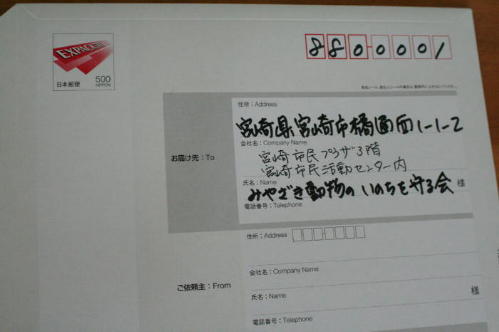 EXPACK500
500
NIPPON
日本郵便
8800001
住所：Address
宮崎県宮崎市橘通西1-1-2
会社名：Company Name
宮崎市民プラザ3階
宮崎市民活動センター内
お届け先：To
氏名：Name
みやざき動物のいのちを守る会
様
電話番号：Telephone
住所：Address
会社名：Company Name
ご依頼主：From
氏名：Name
様
電話番号：Telephone